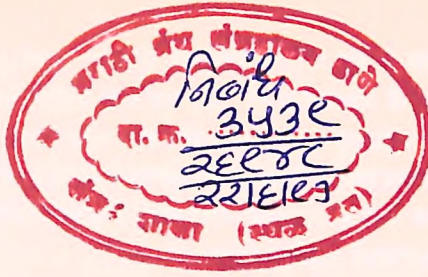 मराठी ग्रंथ संग्रहालय ठाणे
निबंध
वा. क्र. ३५३९
२६९४८
२२।६।९७
शाखा (स्थळ प्रत)